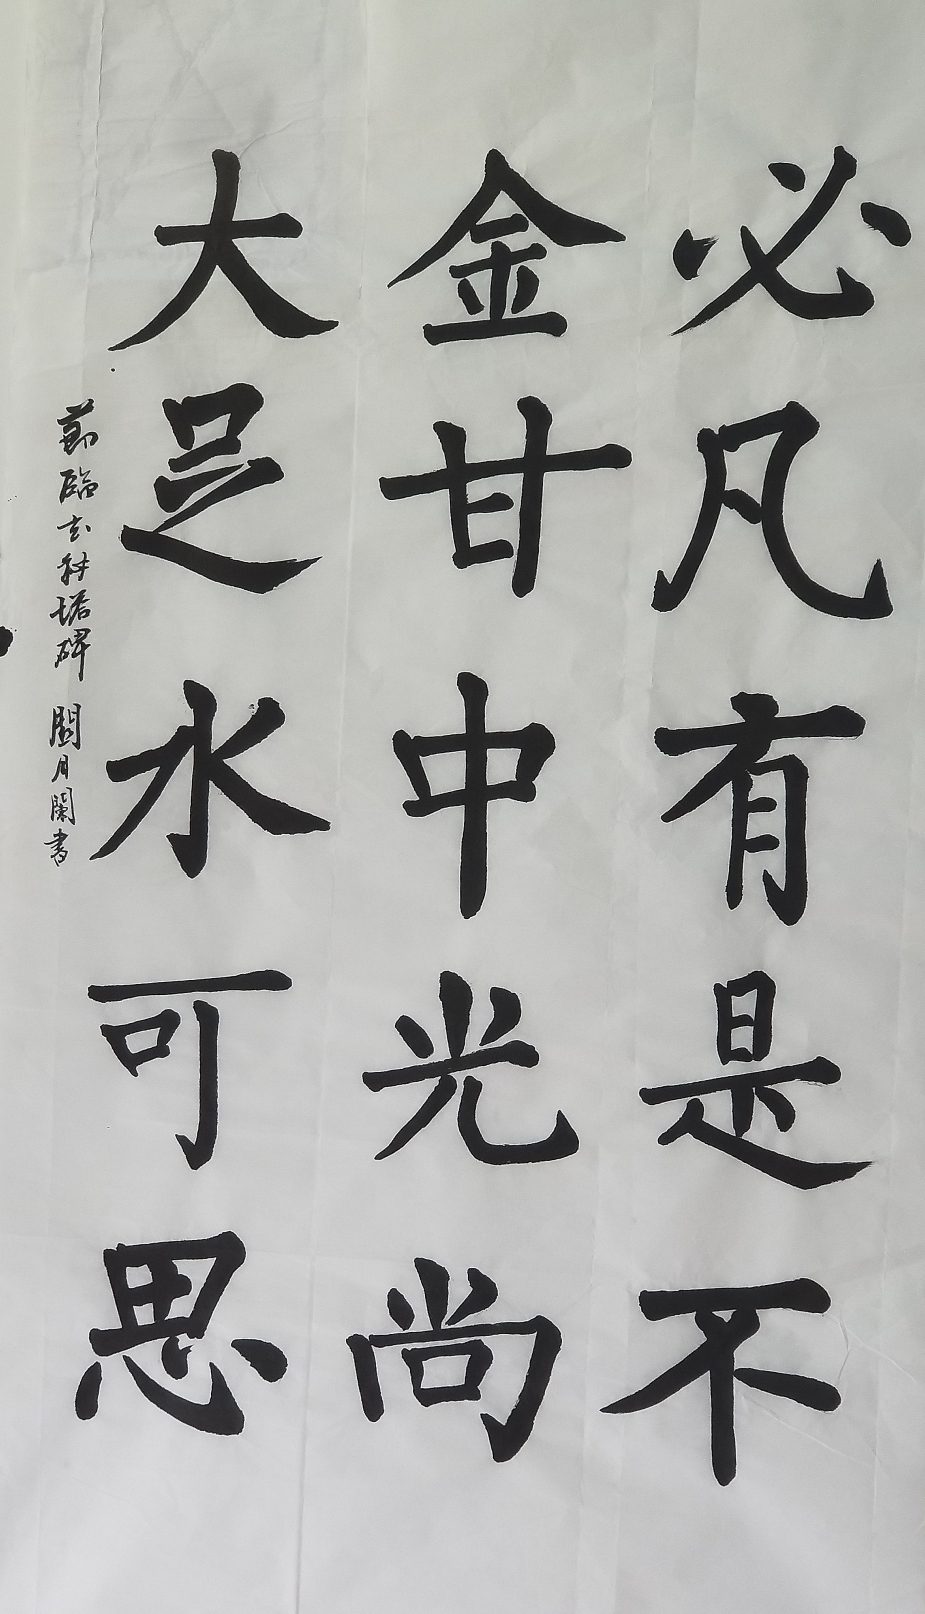 必凡有是不
金甘中光尚
大足水可思
節臨玄秘塔碑 關月闌書